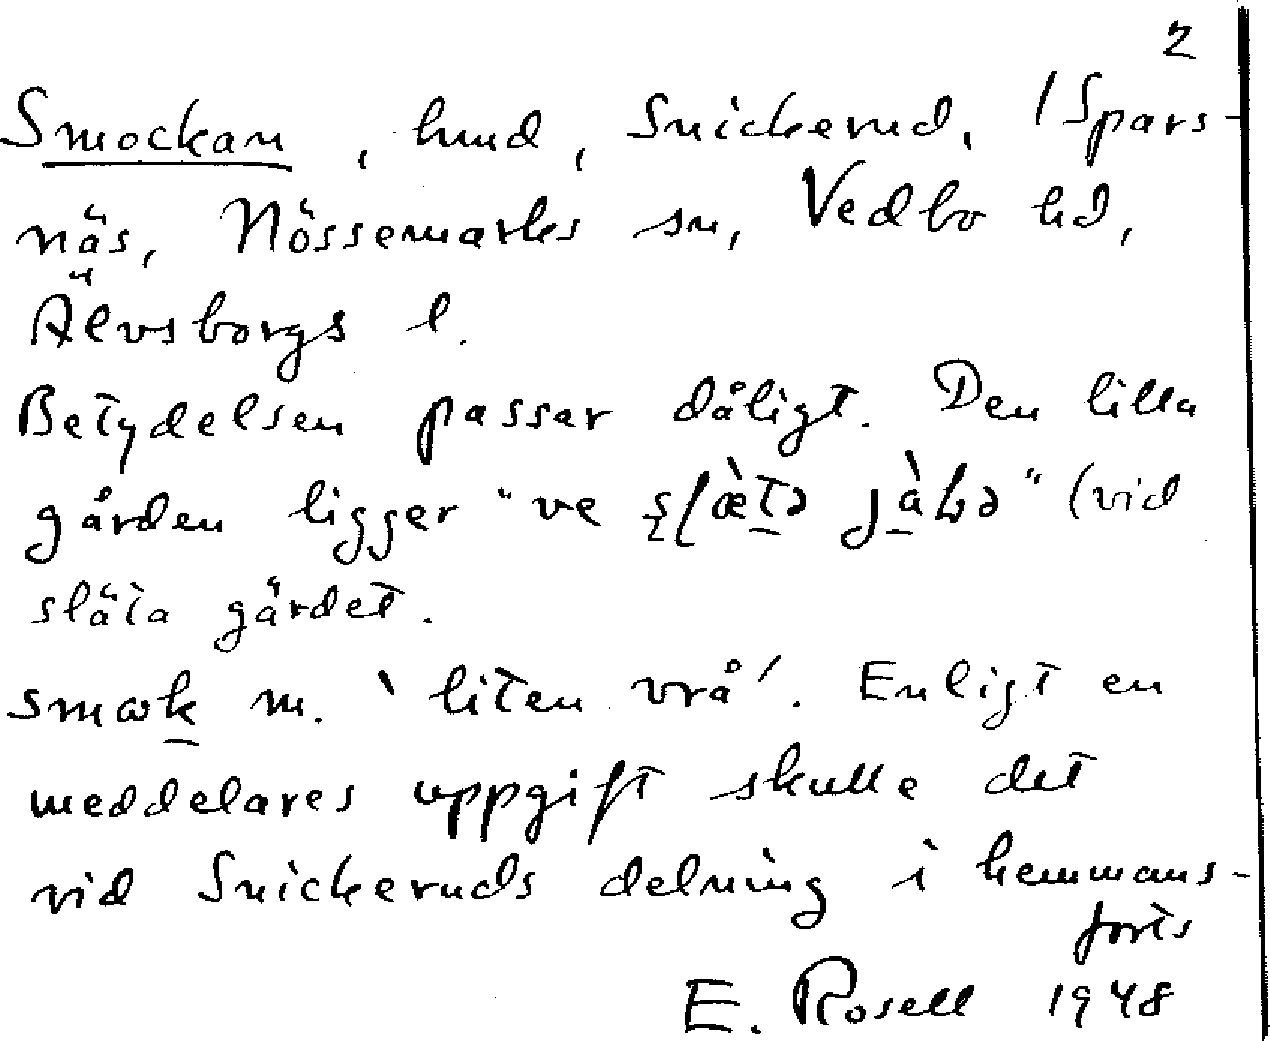 2
Smockan, hmd, Snickerud, 1 Spars-
näs, Nössemarks sn, Vedbo hd,
Älvsborgs l.
Betydelsen passar dåligt. Den lilla
gården ligger "ve
(vid
släta gärdet.
smωk m. `liten vrå´. Enligt en
meddelares uppgift skulle det
vid Snickeruds delning i hemmans-
forts
E. Rosell 1948